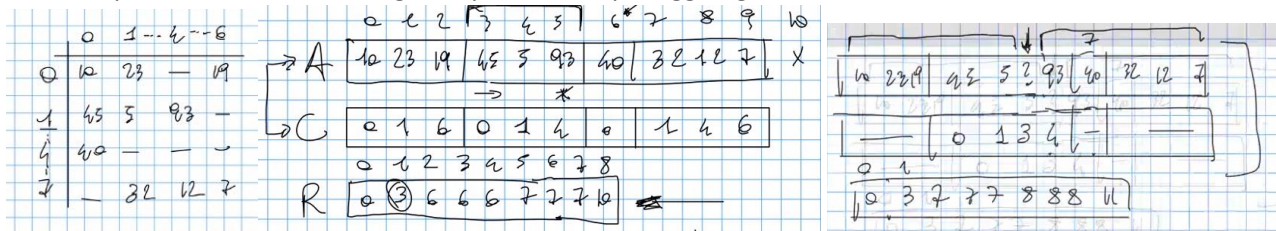 0 1 -- 4 -- 6
0 10 23 — 19
1 45 5 93 —
4 40 — — —
7 — 32 12 7
0 1 2 3 4 5 6* 7 8 9 10
A 10 23 19 45 5 93 40 32 12 7 X
→ *
C 0 1 6 0 1 4 0 1 4 6
0 1 2 3 4 5 6 7 8
R 0 3 6 6 6 7 7 7 10
7
10 23 19 45 5 2 93 40 32 12 7
— 0 1 3 4 — —
0 1
0 3 7 7 7 8 8 8 11